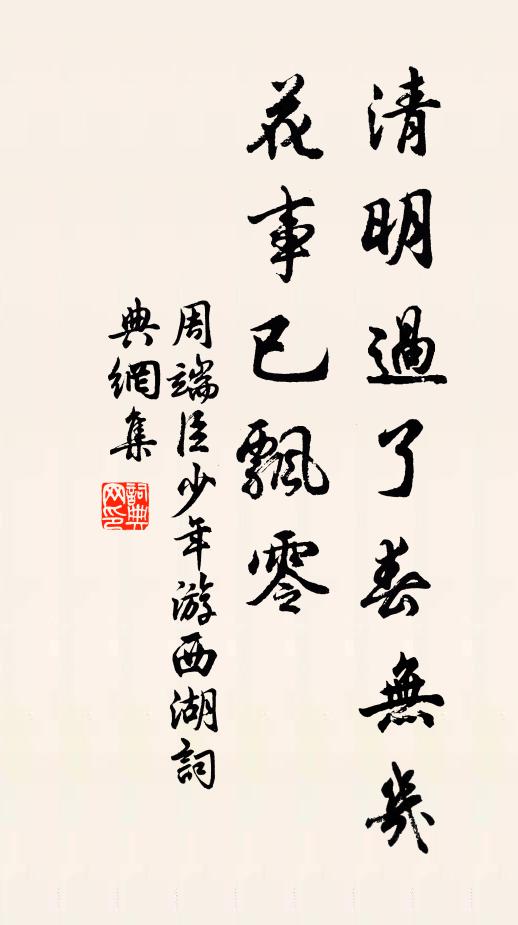 清明過了春無幾
花事已飄零
周端臣少年游西湖詞
典網集
詞典網印